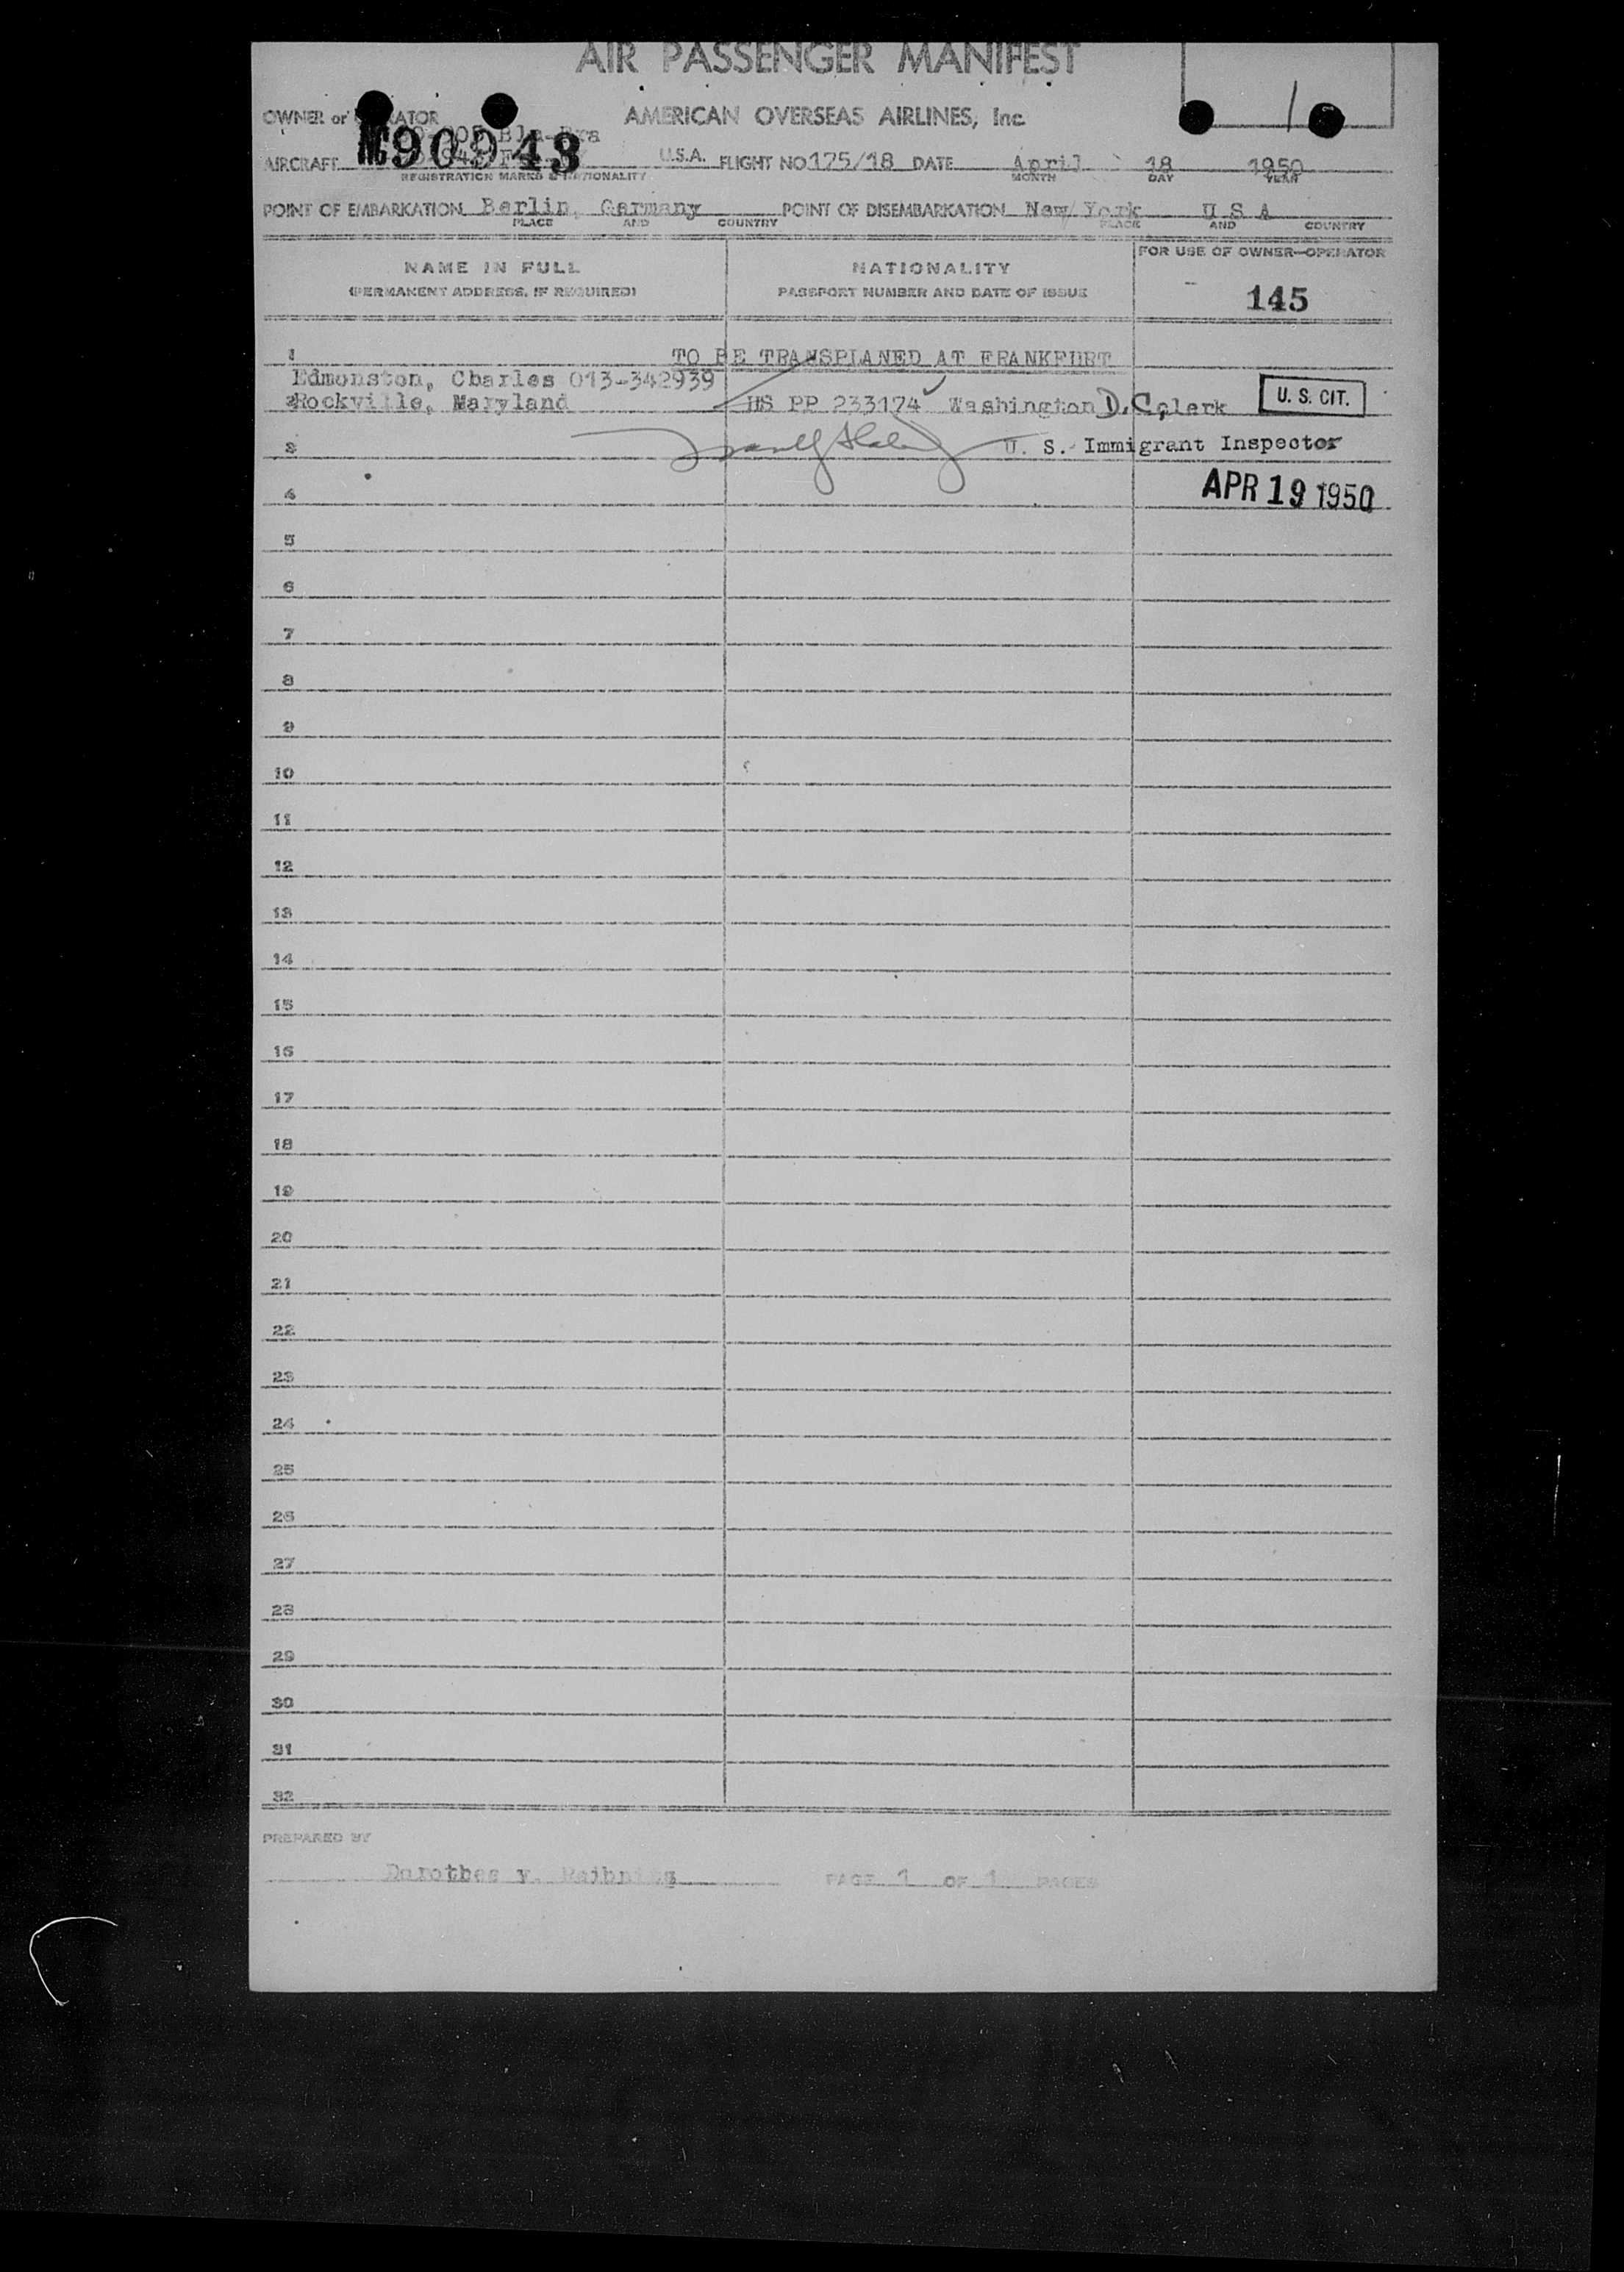 AIR PASSENGER MANIFEST
1
OWNER or AMERICAN OVERSEAS AIRLINES, Inc
AIRCRAFT NC90943 U.S.A. FLIGHT NO 175/18 DATE April 18 1950
REGISTRATION MARKS & NATIONALITY MONTH DAY YEAR
POINT OF EMBARKATION Berlin, Germany POINT OF DISEMBARKATION New York U S A
PLACE AND COUNTRY PLACE AND COUNTRY
NAME IN FULL NATIONALITY FOR USE OF OWNER-OPERATOR
(PERMANENT ADDRESS, IF REQUIRED) PASSPORT NUMBER AND DATE OF ISSUE 145
1 TO BE TRANSPLANED AT FRANKFURT
Edmonston, Charles 013-342939
2 Rockville, Maryland US PP 233174 Washington D.C. clerk U. S. CIT.
3 U. S. Immigrant Inspector
4 APR 19 1950
5
6
7
8
9
10
11
12
13
14
15
16
17
18
19
20
21
22
23
24
25
26
27
28
29
30
31
32
PREPARED BY
Dorothea v. PAGE 1 OF 1 PAGES